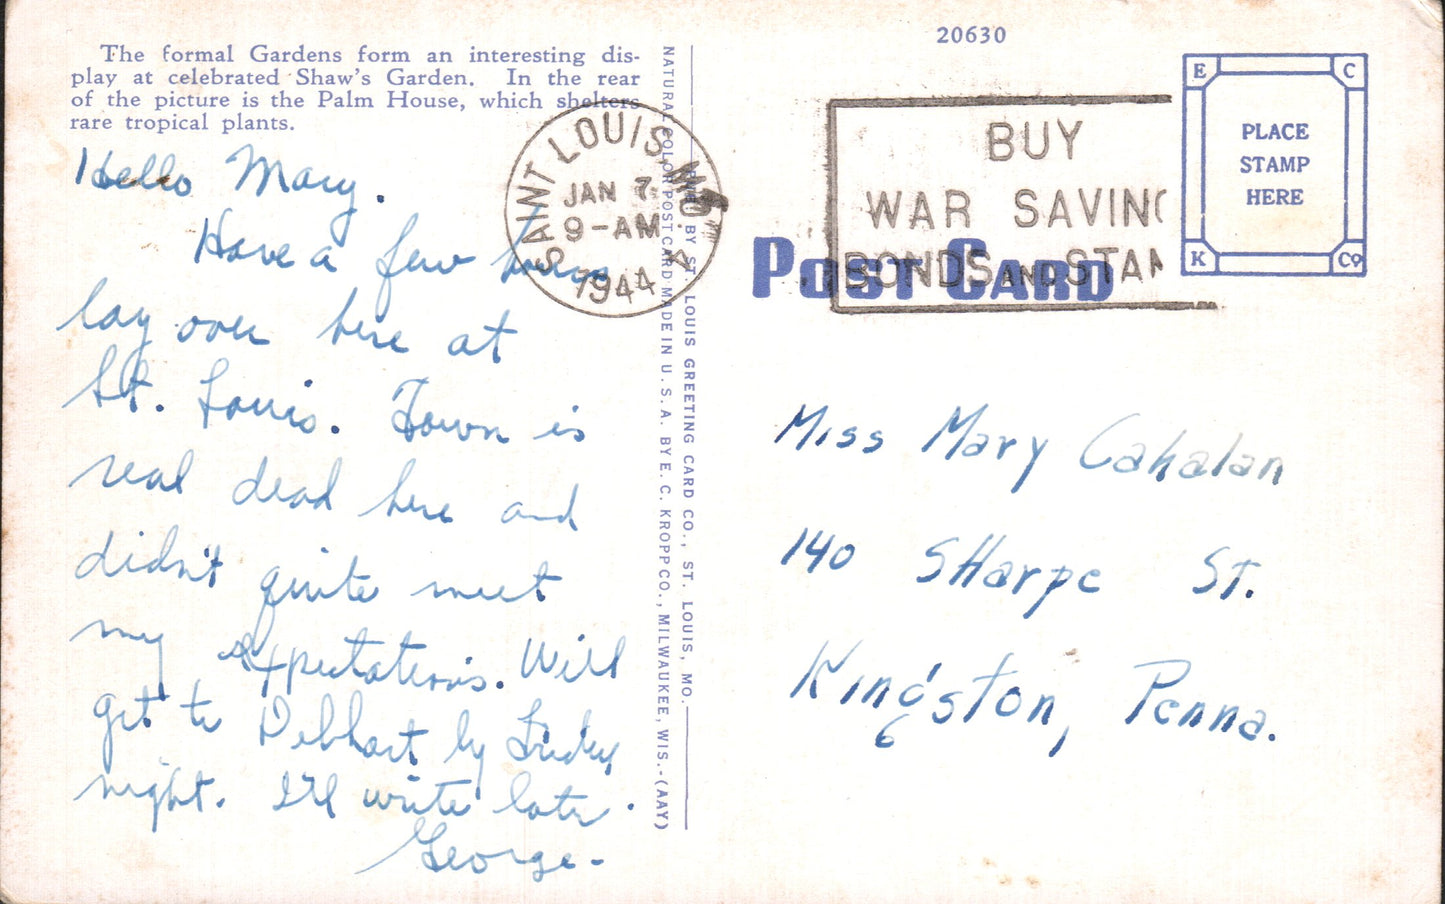 20630
The formal Gardens form an interesting dis-
play at celebrated Shaw's Garden. In the rear
of the picture is the Palm House, which shelters
rare tropical plants.
Hello Mary.
Have a few hours
lay over here at
St. Louis. Town is
real dead here and
didn't quite meet
my expectations. Will
get to by Friday
night. I'll write later.
George-
SAINT LOUIS, MO.
JAN 7
9-AM
1944
A
NATURAL COLOR POST CARD MADE IN U. S. A. BY E. C. KROPP CO., MILWAUKEE, WIS.-(AAY)
BY ST. LOUIS GREETING CARD CO., ST. LOUIS, MO.
BUY
WAR SAVING
BONDS AND STAM
POST CARD
E C
PLACE
STAMP
HERE
K Co
Miss Mary Cahalan
140 SHarpe St.
Kingston, Penna.
6